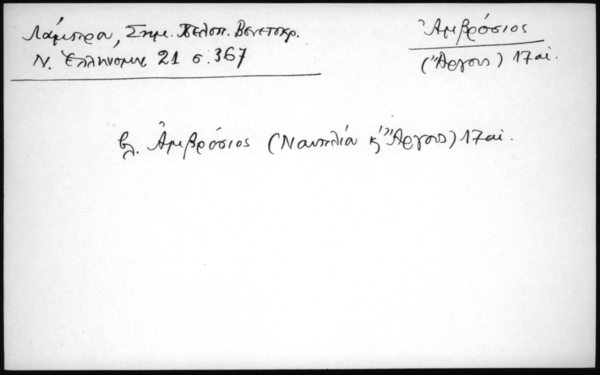 Λάμπρου, Σημ. Πελοπ. Βενετοκρ.
Ν. Ἑλληνομν. 21 σ. 367
Ἀμβρόσιος
(Ἄργους) 17 αἰ.
βλ. Ἀμβρόσιος (Ναυπλίου κ' Ἄργους) 17 αἰ.